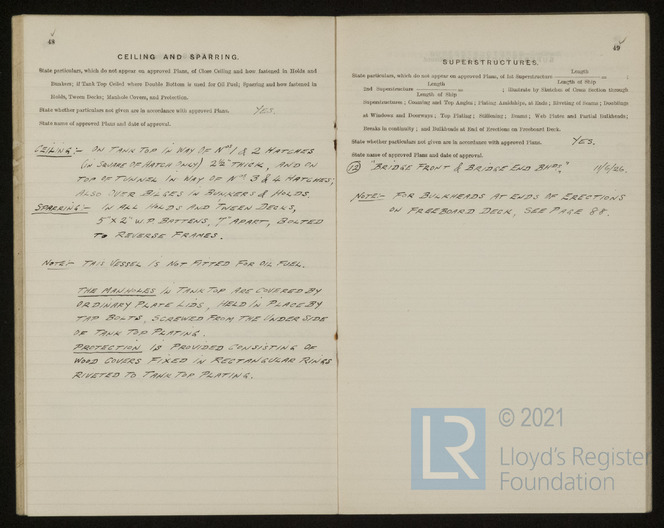 48
CEILING AND SPARRING.
State particulars, which do not appear on approved Plans, of Close Ceiling and how fastened in Holds and
Bunkers; if Tank Top Ceiled where Double Bottom is used for Oil Fuel; Sparring and how fastened in
Holds, Tween Decks; Manhole Covers, and Protection.
State whether particulars not given are in accordance with approved Plans. YES.
State name of approved Plans and date of approval.
CEILING:- ON TANK TOP IN WAY OF Nos 1 & 2 HATCHES
(IN SQUARE OF HATCH ONLY) 2½" THICK, AND ON
TOP OF TUNNEL IN WAY OF Nos 3 & 4 HATCHES;
ALSO OVER BILGES IN BUNKERS & HOLDS.
SPARRING:- IN ALL HOLDS AND TWEEN DECKS,
5" X 2" W.P. BATTENS, 7" APART, BOLTED
TO REVERSE FRAMES.
NOTE:- THIS VESSEL IS NOT FITTED FOR OIL FUEL.
THE MANHOLES IN TANK TOP ARE COVERED BY
ORDINARY PLATE LIDS, HELD IN PLACE BY
TAP BOLTS, SCREWED FROM THE UNDER SIDE
OF TANK TOP PLATING.
PROTECTION IS PROVIDED CONSISTING OF
WOOD COVERS FIXED IN RECTANGULAR RINGS
RIVETED TO TANK TOP PLATING.
49
SUPERSTRUCTURES.
State particulars, which do not appear on approved Plans, of 1st Superstructure Length / Length of Ship = ;
2nd Superstructure Length / Length of Ship = ; Illustrate by Sketches of Cross Section through
Superstructures; Coaming and Top Angles; Plating; Amidships, at Ends; Riveting of Seams; Doublings
at Windows and Doorways; Top Plating; Stiffening; Beams; Web Plates and Partial Bulkheads;
Breaks in continuity; and Bulkheads at End of Erections on Freeboard Deck.
State whether particulars not given are in accordance with approved Plans. YES.
State name of approved Plans and date of approval.
(12) "BRIDGE FRONT & BRIDGE END BHDS."
NOTE:- FOR BULKHEADS AT ENDS OF ERECTIONS
ON FREEBOARD DECK, SEE PAGE 88.
LR
© 2021
Lloyd's Register
Foundation